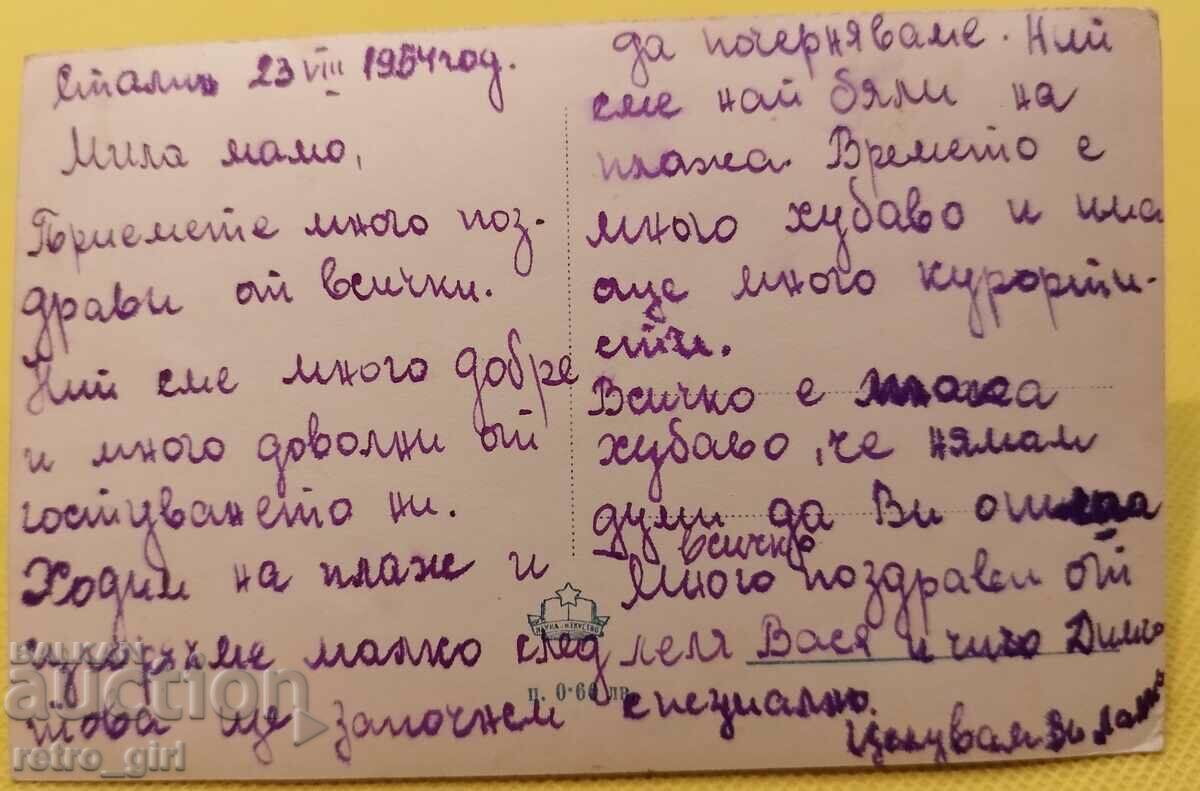 Сталин 23 VIII 1954 год.
Мила мамо,
Приемете много поз-
драви от всички.
Ний сме много добре
и много доволни от
гостуването ни.
Ходим на плаж и
малко след
това ще започнем
да почерняваме. Ний
сме най бяли на
плажа. Времето е
много хубаво и има
още много курорти-
сти.
Всичко е
хубаво, че нямам
думи да Ви
всичко
Много поздрави от
леля Вася и чичо Димчо
специално.
Целувам Ви
НАУКА ИЗКУСТВО
ц. 0·60 лв.
BALKAN
auction
retro_girl